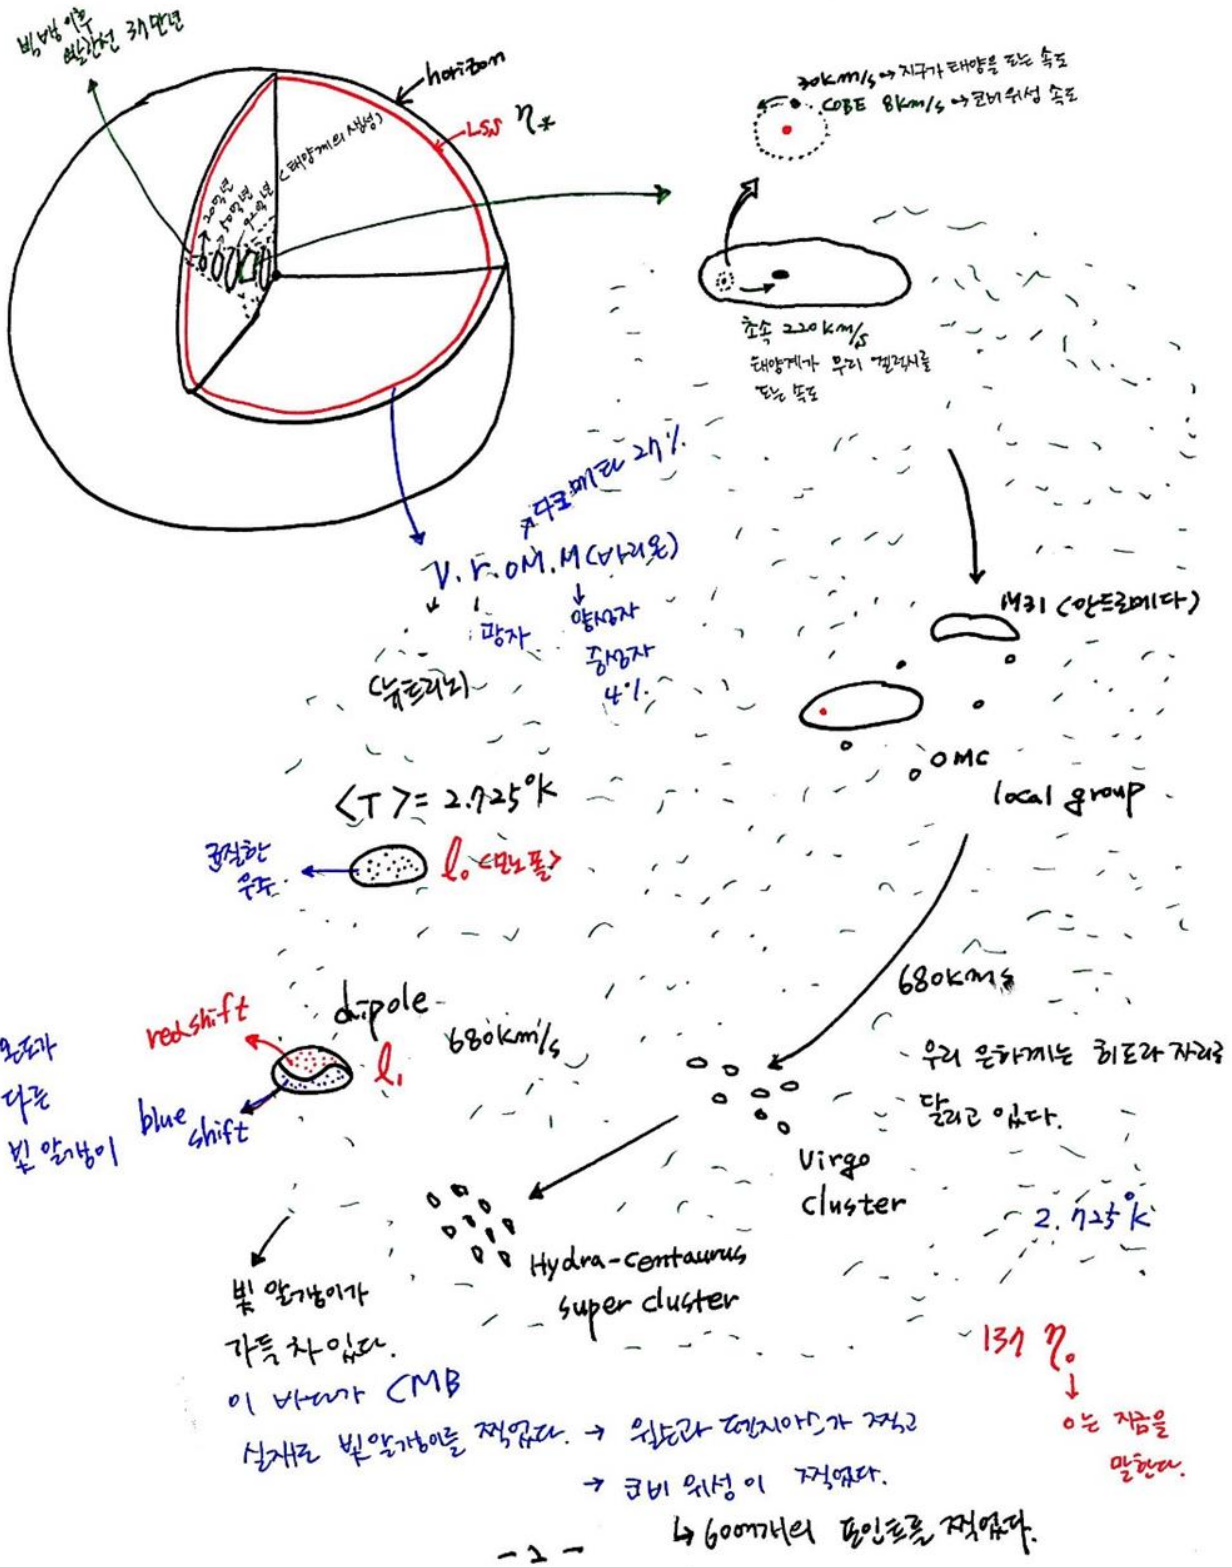 빅뱅이후
빨간선 37만년
horizon
LSS η*
<태양계의 생성>
30km/s → 지구가 태양을 도는 속도
COBE 8km/s → 코비 위성 속도
초속 220km/s
태양계가 우리 겔럭시를
도는 속도
다크메타 27%.
ν. r. DM. M(바리온)
광자
양성자
중성자
4%.
(뉴트리노)
M31 (안드로메다)
OMC
local group
<T> = 2.725°K
균질한
우주.
l₀ <모노폴>
dipole
redshift
l₁
680km/s
온도가
다른
빛 알갱이
blue
shift
680km/s
우리 은하계는 히드라 자리로
달리고 있다.
Virgo
cluster
2.725°K
Hydra-centaurus
super cluster
빛 알갱이가
가득 차 있다.
이 바다가 CMB
실재로 빛 알갱이를 찍었다. → 윌슨과 펜지아스가 찍고
→ 코비 위성이 찍었다.
↳ 6000개의 포인트를 찍었다.
137 η₀
0는 지금을
말한다.
- 2 -